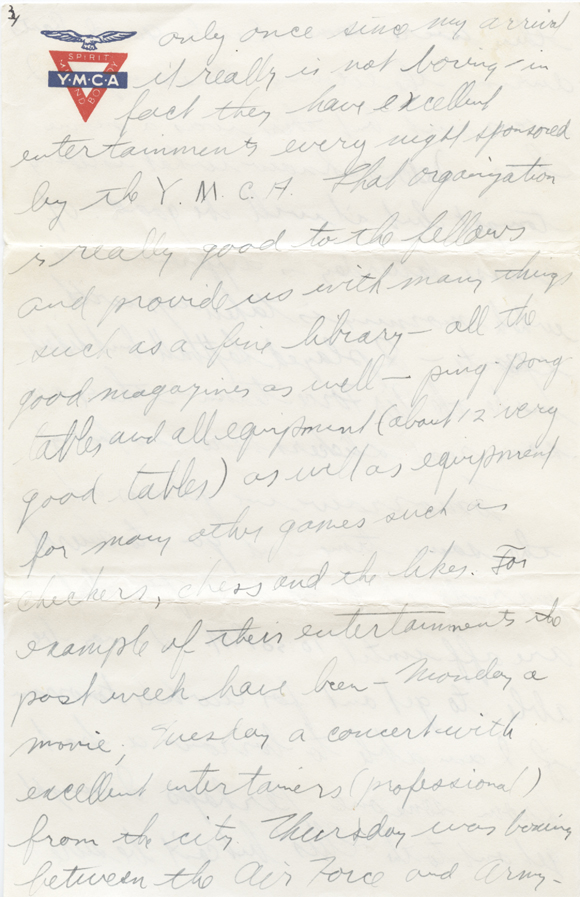 3/
only once since my arrival
SPIRIT
Y·M·C·A
MIND
BODY
it really is not boring - in
fact they have excellent
entertainments every night sponsored
by the Y. M. C. A. That organization
is really good to the fellows
and provide us with many things
such as a fine library - all the
good magazines as well - ping-pong
tables and all equipment (about 12 very
good tables) as well as equipment
for many other games such as
checkers, chess and the likes. For
example of their entertainments the
past week have been - Monday a
movie, Tuesday a concert with
excellent entertainers (professional)
from the city. Thursday was boxing
between the Air Force and Army -